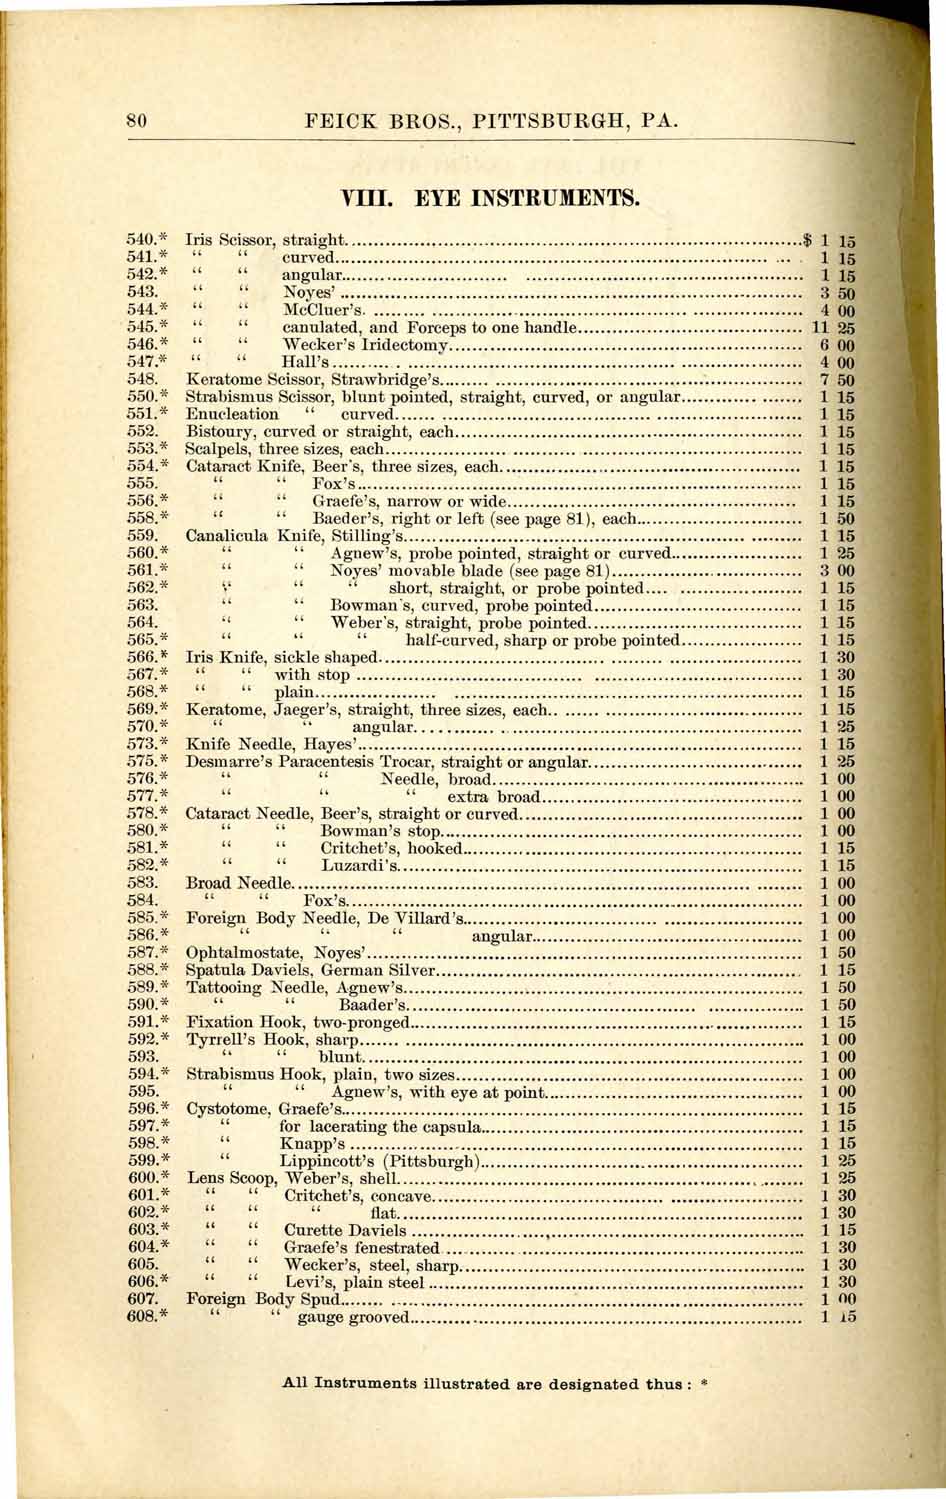 80 FEICK BROS., PITTSBURGH, PA.
VIII. EYE INSTRUMENTS.
540.* Iris Scissor, straight $ 1 15
541.* “ “ curved 1 15
542.* “ “ angular 1 15
543. “ “ Noyes’ 3 50
544.* “ “ McCluer's 4 00
545.* “ “ canulated, and Forceps to one handle 11 25
546.* “ “ Wecker's Iridectomy 6 00
547.* “ “ Hall's 4 00
548. Keratome Scissor, Strawbridge's 7 50
550.* Strabismus Scissor, blunt pointed, straight, curved, or angular 1 15
551.* Enucleation “ curved 1 15
552. Bistoury, curved or straight, each 1 15
553.* Scalpels, three sizes, each 1 15
554.* Cataract Knife, Beer's, three sizes, each 1 15
555. “ “ Fox's 1 15
556.* “ “ Graefe's, narrow or wide 1 15
558.* “ “ Baeder's, right or left (see page 81), each 1 50
559. Canalicula Knife, Stilling's 1 15
560.* “ “ Agnew's, probe pointed, straight or curved 1 25
561.* “ “ Noyes' movable blade (see page 81) 3 00
562.* “ “ “ short, straight, or probe pointed 1 15
563. “ “ Bowman's, curved, probe pointed 1 15
564. “ “ Weber's, straight, probe pointed 1 15
565.* “ “ “ half-curved, sharp or probe pointed 1 15
566.* Iris Knife, sickle shaped 1 30
567.* “ “ with stop 1 30
568.* “ “ plain 1 15
569.* Keratome, Jaeger's, straight, three sizes, each 1 15
570.* “ “ angular 1 25
573.* Knife Needle, Hayes' 1 15
575.* Desmarre's Paracentesis Trocar, straight or angular 1 25
576.* “ “ Needle, broad 1 00
577.* “ “ “ extra broad 1 00
578.* Cataract Needle, Beer's, straight or curved 1 00
580.* “ “ Bowman's stop 1 00
581.* “ “ Critchet's, hooked 1 15
582.* “ “ Luzardi's 1 15
583. Broad Needle 1 00
584. “ “ Fox's 1 00
585.* Foreign Body Needle, De Villard's 1 00
586.* “ “ “ angular 1 00
587.* Ophtalmostate, Noyes' 1 50
588.* Spatula Daviels, German Silver 1 15
589.* Tattooing Needle, Agnew's 1 50
590.* “ “ Baader's 1 50
591.* Fixation Hook, two-pronged 1 15
592.* Tyrrell's Hook, sharp 1 00
593. “ “ blunt 1 00
594.* Strabismus Hook, plain, two sizes 1 00
595. “ “ Agnew's, with eye at point 1 00
596.* Cystotome, Graefe's 1 15
597.* “ for lacerating the capsula 1 15
598.* “ Knapp's 1 15
599.* “ Lippincott's (Pittsburgh) 1 25
600.* Lens Scoop, Weber's, shell 1 25
601.* “ “ Critchet's, concave 1 30
602.* “ “ “ flat 1 30
603.* “ “ Curette Daviels 1 15
604.* “ “ Graefe's fenestrated 1 30
605. “ “ Wecker's, steel, sharp 1 30
606.* “ “ Levi's, plain steel 1 30
607. Foreign Body Spud 1 00
608.* “ “ gauge grooved 1 15
All Instruments illustrated are designated thus : *